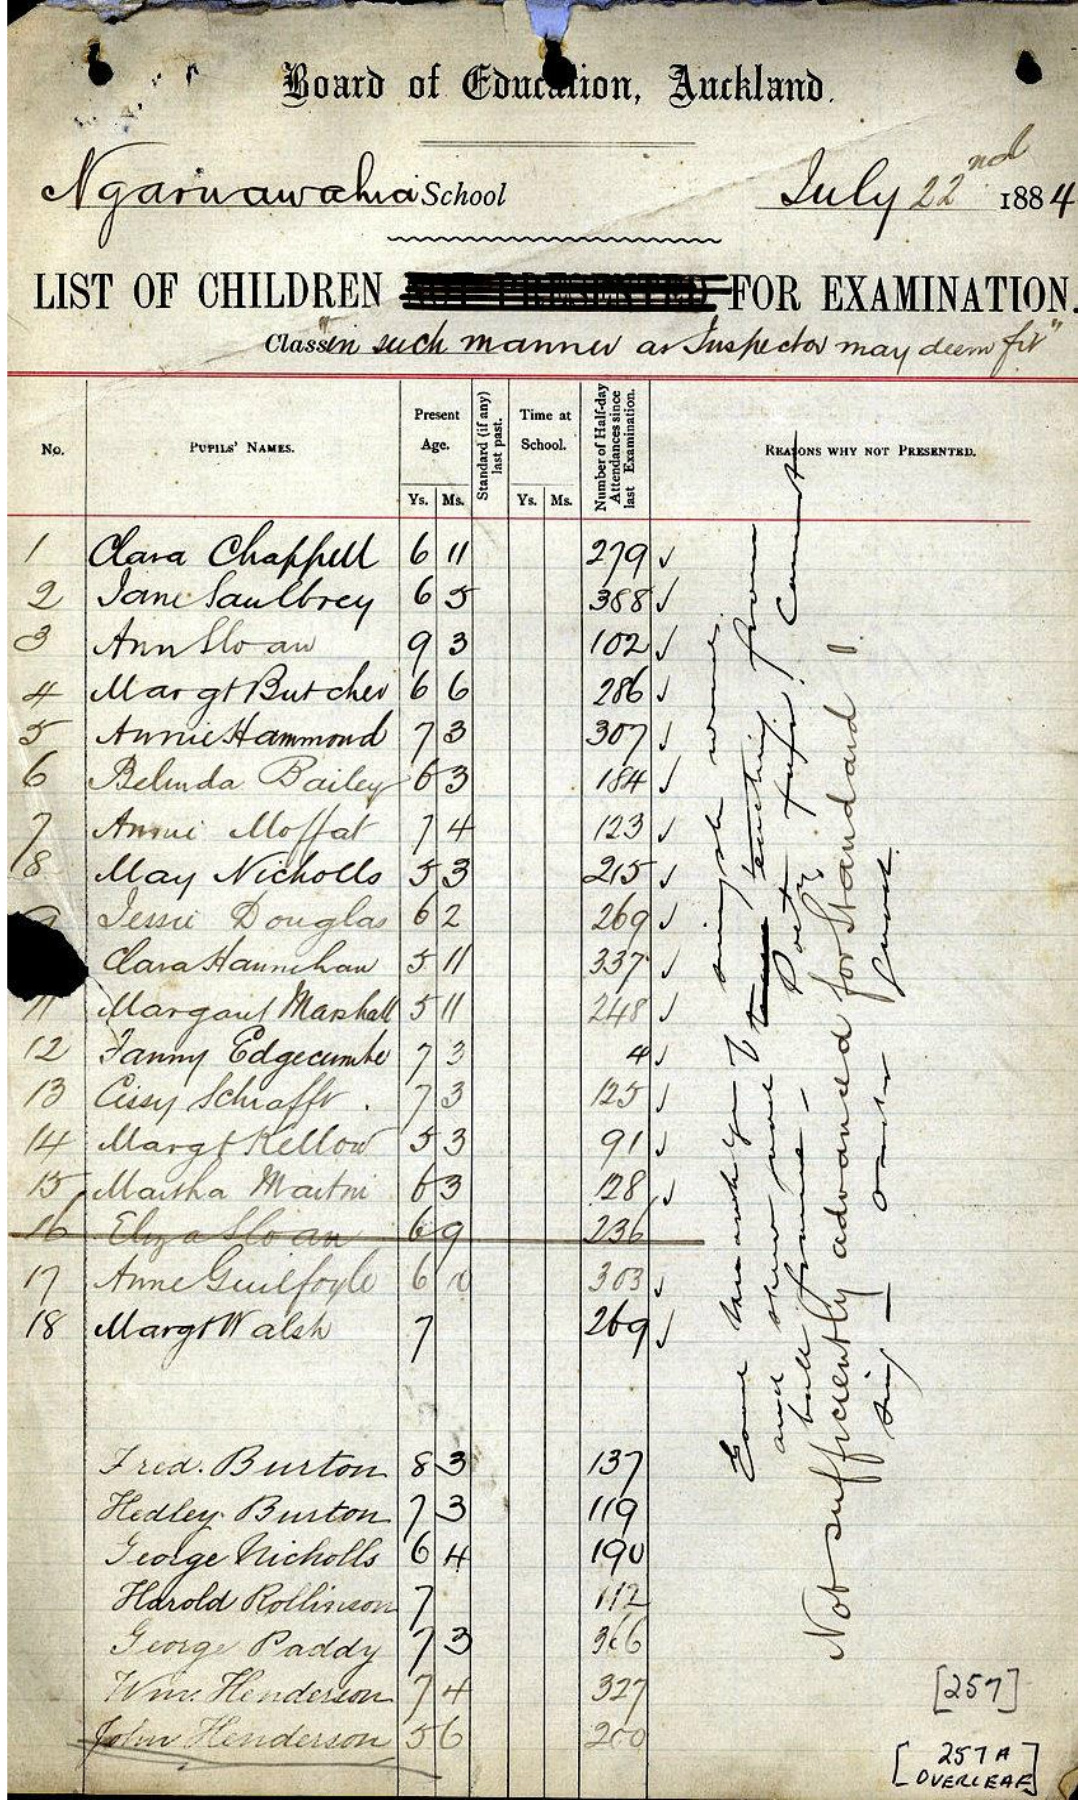 Board of Education, Auckland.
Ngaruawahia School July 22nd 1884
LIST OF CHILDREN NOT PRESENTED FOR EXAMINATION.
Class "in such manner as Inspector may deem fit"
No. PUPILS' NAMES. Present Age. Ys. Ms. Standard (if any) last past. Time at School. Ys. Ms. Number of Half-day Attendances since last Examination. REASONS WHY NOT PRESENTED.
1 Clara Chappell 6 11 279 ✓
2 Jane Saulbrey 6 5 388 ✓
3 Ann Sloan 9 3 102 ✓
4 Margt Butcher 6 6 286 ✓
5 Annie Hammond 7 3 307 ✓
6 Belinda Bailey 6 3 184 ✓
7 Annie Moffat 7 4 123 ✓
8 May Nicholls 5 3 215 ✓
9 Jessie Douglas 6 2 269 ✓
Clara Hannehan 5 11 337 ✓
11 Margaret Marshall 5 11 248 ✓
12 Fanny Edgecumbe 7 3 4 ✓
13 Cissy Schrafft . 7 3 125 ✓
14 Margt Kellow 5 3 91 ✓
15 Martha Martin 6 3 128 ✓
16 Eliza Sloan 6 9 236
17 Anne Guilfoyle 6 303 ✓
18 Margt Walsh 7 269 ✓
Fred. Burton 8 3 137
Hedley Burton 7 3 119
George Nicholls 6 4 190
Harold Rollinson 7 112
George Paddy 7 3 366
Wm. Henderson 7 4 327
John Henderson 5 6 200
and show more
Not sufficiently advanced for Standard 1
[257]
[257A
OVERLEAF]